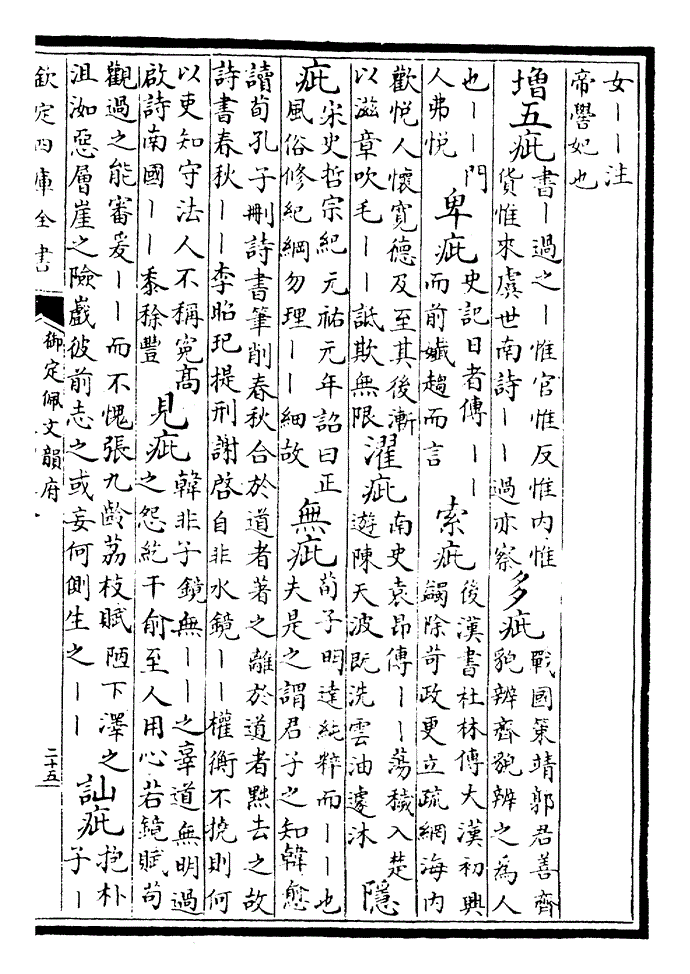 女丨丨注
帝嚳妃也
增五疵
書丨過之丨惟官惟反惟内惟
貨惟來虞世南詩丨丨過亦察
多疵
戰國策靖郭君善齊
貌辨齊貌辨之為人
也丨丨門
人弗悦
卑疵
史記日者傳丨丨
而前孅趨而言
索疵
後漢書杜林傳大漢初興
蠲除苛政更立疏網海内
歡悦人懷寛德及至其後漸
以滋章吹毛丨丨詆欺無限
濯疵
南史袁昂傳丨丨蕩穢入楚
遊陳天波既洗雲油遽沐
隱
疵
宋史哲宗紀元祐元年詔曰正
風俗修紀綱勿理丨丨細故
無疵
荀子明達純粹而丨丨也
夫是之謂君子之知韓愈
讀荀孔子刪詩書筆削春秋合於道者著之離於道者黜去之故
詩書春秋丨丨李昭玘提刑謝啓自非水鏡丨丨權衡不撓則何
以吏知守法人不稱寃高
啟詩南國丨丨黍稌豐
見疵
韓非子鏡無丨丨之辜道無明過
之怨紇干俞至人用心若鏡賦苟
觀過之能審爰丨丨而不愧張九齡荔枝賦陋下澤之
沮洳惡層崖之險巇彼前志之或妄何側生之丨丨
訕疵
抱朴
子丨
欽定四庫全書
御定佩文韻府
二十五